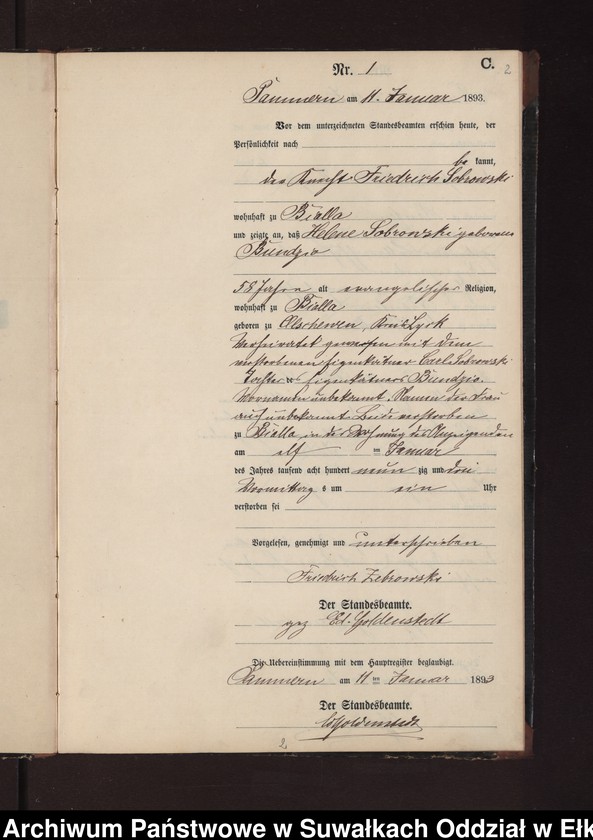 Nr. 1
C. 2
Pammern am 11. Januar 1893.
Vor dem unterzeichneten Standesbeamten erschien heute, der
Persönlichkeit nach
be kannt,
der Knecht Friedrich Sobrowski
wohnhaft zu Bialla
und zeigte an, daß Helene Sobrowski geborene
Bundzio
58 Jahre alt evangelischer Religion,
wohnhaft zu Bialla
geboren zu Olschewen, Kreis Lyck
Verheiratet gewesen mit dem
verstorbenen Eigenkätner Carl Sobrowski
Tochter des Eigenkätners Bundzio.
Vornamen unbekannt. Namen der Frau
auch unbekannt. Beide verstorben
zu Bialla in der Wohnung des Anzeigenden
am elf ten Januar
des Jahres tausend acht hundert neun zig und drei
Vormittag s um ein Uhr
verstorben sei
Vorgelesen, genehmigt und unterschrieben
Friedrich Zebrowski
Der Standesbeamte.
gez Goldenstedt
Die Uebereinstimmung mit dem Hauptregister beglaubigt.
Pammern am 11 ten Januar 1893
Der Standesbeamte.
Goldenstedt
2
Archiwum Państwowe w Suwałkach Oddział w Ełk